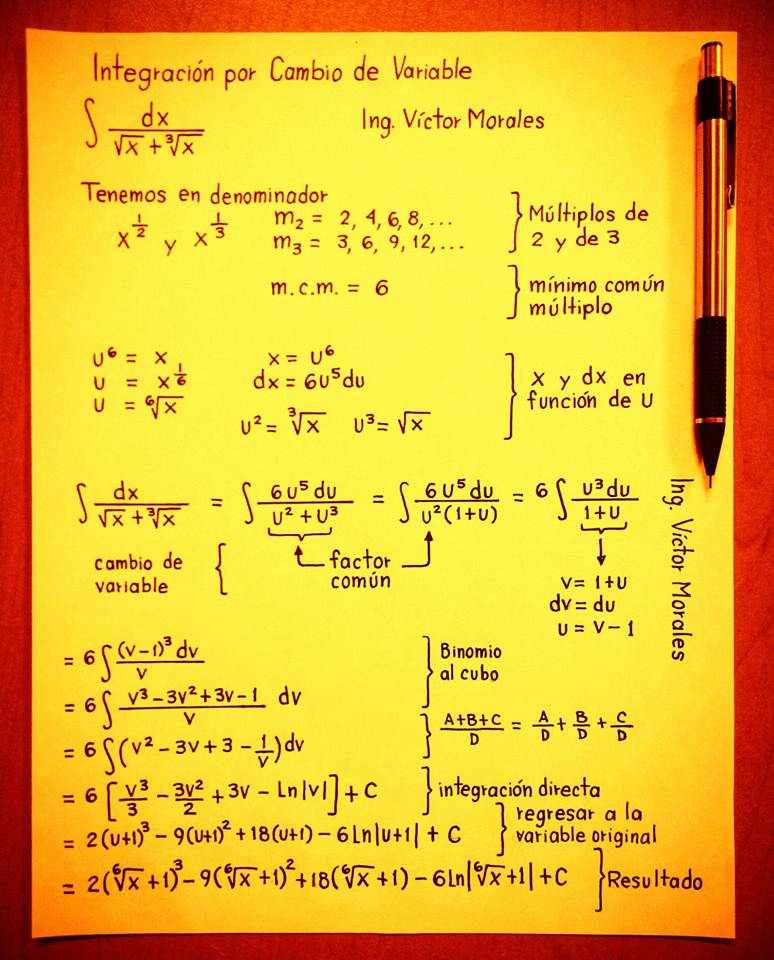 Integración por Cambio de Variable
∫ dx / (√x + ∛x)
Ing. Víctor Morales
Tenemos en denominador
x^(1/2) y x^(1/3)
m₂ = 2, 4, 6, 8, ...
m₃ = 3, 6, 9, 12, ...
} Múltiplos de
2 y de 3
m.c.m. = 6
} mínimo común
múltiplo
U⁶ = x
U = x^(1/6)
U = ⁶√x
x = U⁶
dx = 6U⁵du
U² = ∛x U³ = √x
} X y dx en
función de U
∫ dx / (√x + ∛x) = ∫ 6U⁵du / (U² + U³) = ∫ 6U⁵du / (U²(1+U)) = 6 ∫ U³du / (1+U)
cambio de
variable {
factor
común
v = 1+U
dv = du
u = v - 1
Ing. Víctor Morales
= 6 ∫ (v-1)³ dv / v
} Binomio
al cubo
= 6 ∫ (v³ - 3v² + 3v - 1) / v dv
} (A+B+C) / D = A/D + B/D + C/D
= 6 ∫ (v² - 3v + 3 - 1/v) dv
= 6 [v³/3 - 3v²/2 + 3v - Ln|v|] + C } integración directa
= 2(u+1)³ - 9(u+1)² + 18(u+1) - 6Ln|u+1| + C
} regresar a la
variable original
= 2(⁶√x +1)³ - 9(⁶√x +1)² + 18(⁶√x +1) - 6Ln|⁶√x +1| + C } Resultado